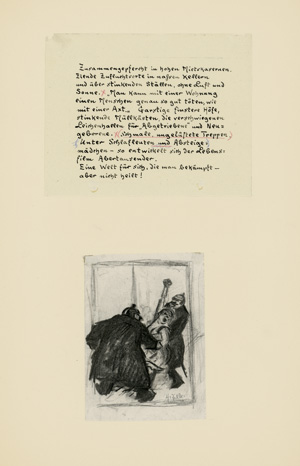 Zusammengepfercht in hohen Mietskasernen.
Elende Zufluchtsorte in nassen Kellern
und über stinkenden Ställen, ohne Luft und
Sonne. „Man kann mit einer Wohnung
einen Menschen genau so gut töten, wie
mit einer Axt." Garstige finstere Höfe,
stinkende Müllkästen, die verschwiegenen
Leichenhallen für Abgetriebene und Neu=
geborene. Schmale, ungelüftete Treppen,
unter Schlafleuten und Absteige=
mädchen – so entwickelt sich der Lebens=
film Abertausender.
Eine Welt für sich, die man bekämpft –
aber nicht heilt!